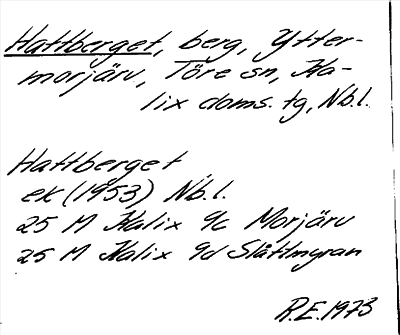 Hattberget, berg, Ytter-
morjärv, Töre sn, Ka-
lix doms. tg, Nb.l.
Hattberget
ek (1953) Nb.l.
25 M Kalix 9c Morjärv
25 M Kalix 9d Slåttmyran
R.E. 1973